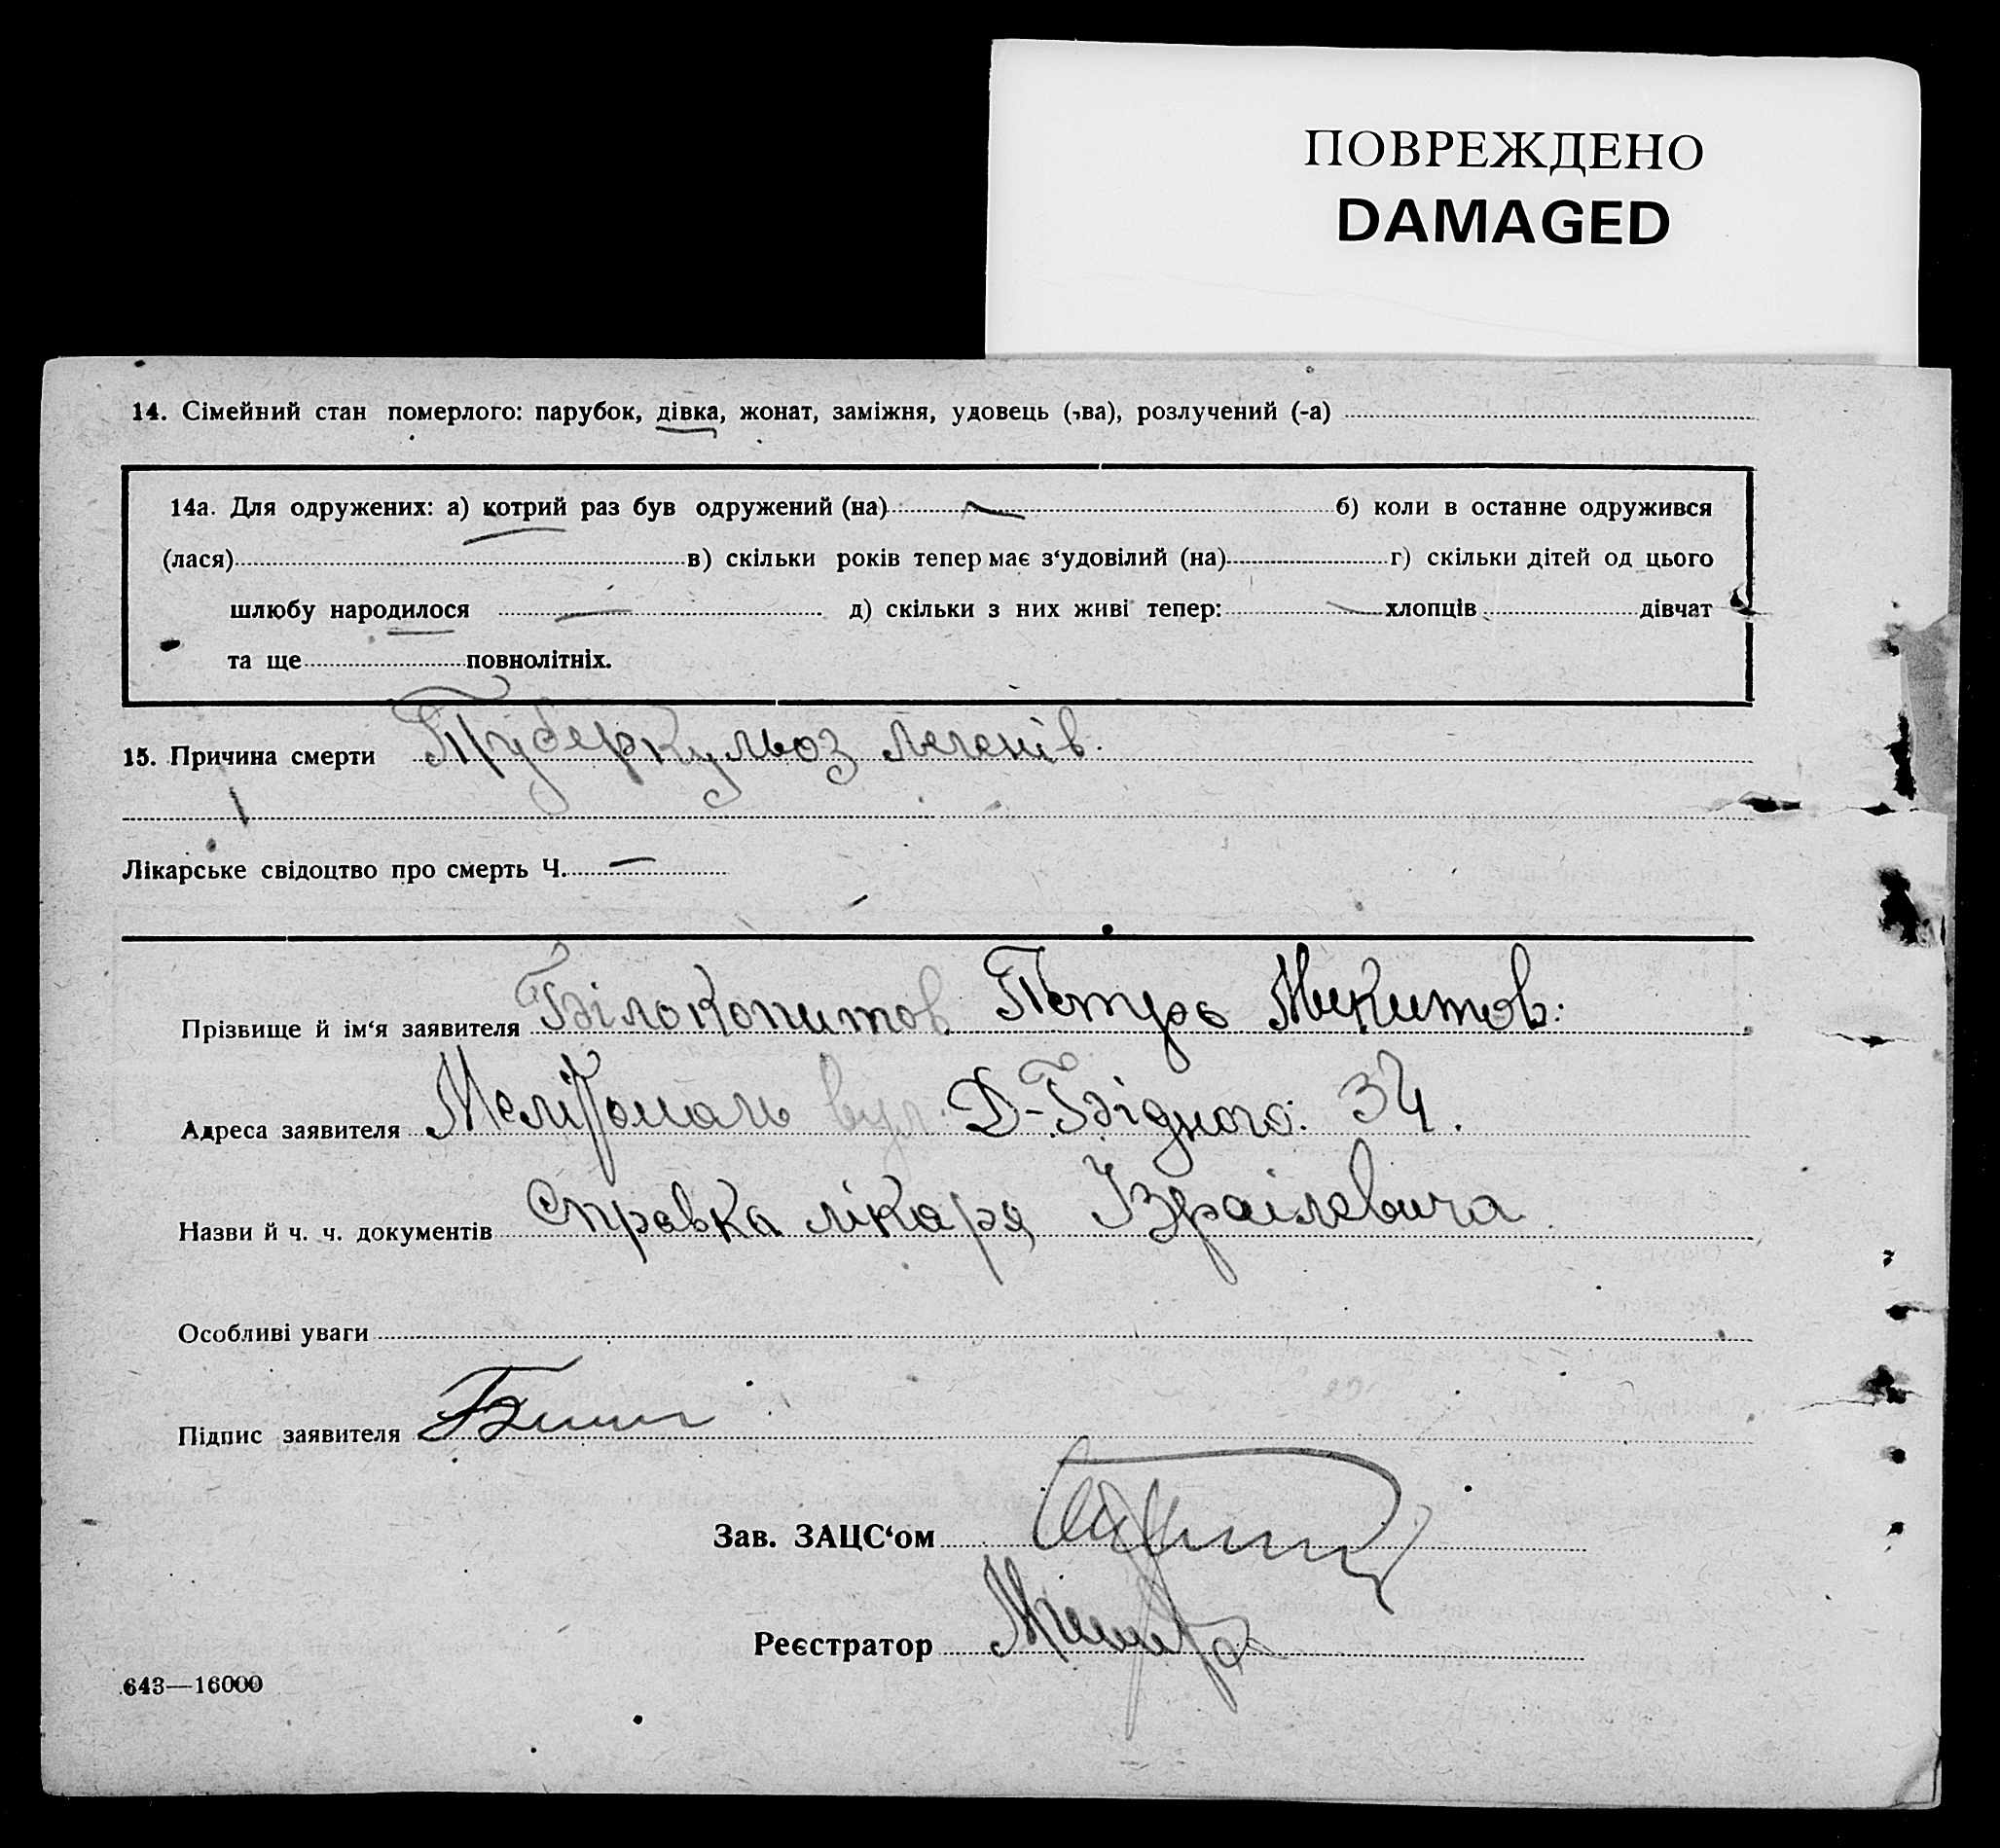 ПОВРЕЖДЕНО
DAMAGED
14. Сімейний стан померлого: парубок, дівка, жонат, заміжня, удовець (-ва), розлучений (-а)
14а. Для одружених: а) котрий раз був одружений (на) — б) коли в останнє одружився
(лася) в) скільки років тепер має з‘удовілий (на) г) скільки дітей од цього
шлюбу народилося — д) скільки з них живі тепер: — хлопців дівчат
та ще повнолітніх.
15. Причина смерти Туберкульоз легенів.
Лікарське свідоцтво про смерть Ч. —
Прізвище й ім‘я заявителя Білокопитов Петро Микитов:
Адреса заявителя Мелітополь вул. Д-Бідного: 34.
Назви й ч. ч. документів Справка лікаря Ізраілевича
Особливі уваги
Підпис заявителя
Зав. ЗАЦС‘ом
Реєстратор
643—16000